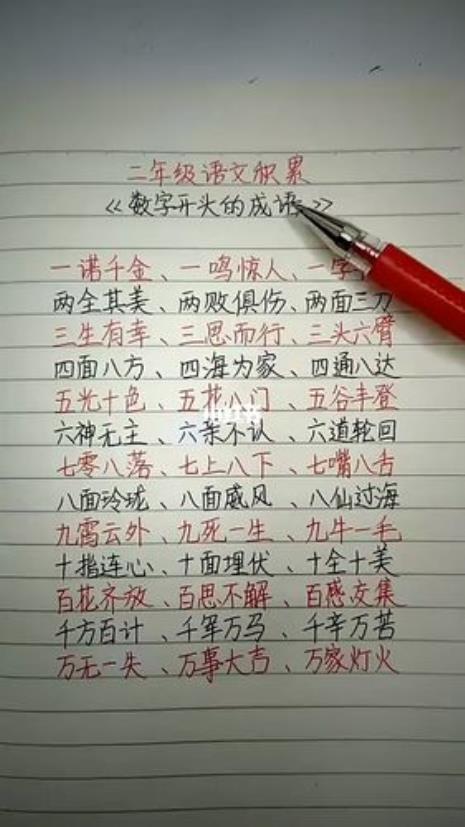 二年级语文积累
《数字开头的成语》
一诺千金、一鸣惊人、一字
两全其美、两败俱伤、两面三刀
三生有幸、三思而行、三头六臂
四面八方、四海为家、四通八达
五光十色、五花八门、五谷丰登
六神无主、六亲不认、六道轮回
七零八落、七上八下、七嘴八舌
八面玲珑、八面威风、八仙过海
九霄云外、九死一生、九牛一毛
十指连心、十面埋伏、十全十美
百花齐放、百思不解、百感交集
千方百计、千军万马、千辛万苦
万无一失、万事大吉、万家灯火